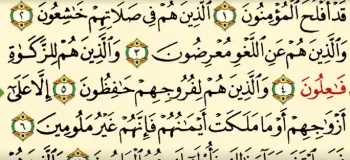 قَدْ أَفْلَحَ ٱلْمُؤْمِنُونَ ١ ٱلَّذِينَ هُمْ فِى صَلَاتِهِمْ خَٰشِعُونَ ٢
وَٱلَّذِينَ هُمْ عَنِ ٱللَّغْوِ مُعْرِضُونَ ٣ وَٱلَّذِينَ هُمْ لِلزَّكَوٰةِ
فَٰعِلُونَ ٤ وَٱلَّذِينَ هُمْ لِفُرُوجِهِمْ حَٰفِظُونَ ٥ إِلَّا عَلَىٰٓ
أَزْوَٰجِهِمْ أَوْ مَا مَلَكَتْ أَيْمَٰنُهُمْ فَإِنَّهُمْ غَيْرُ مَلُومِينَ ٦